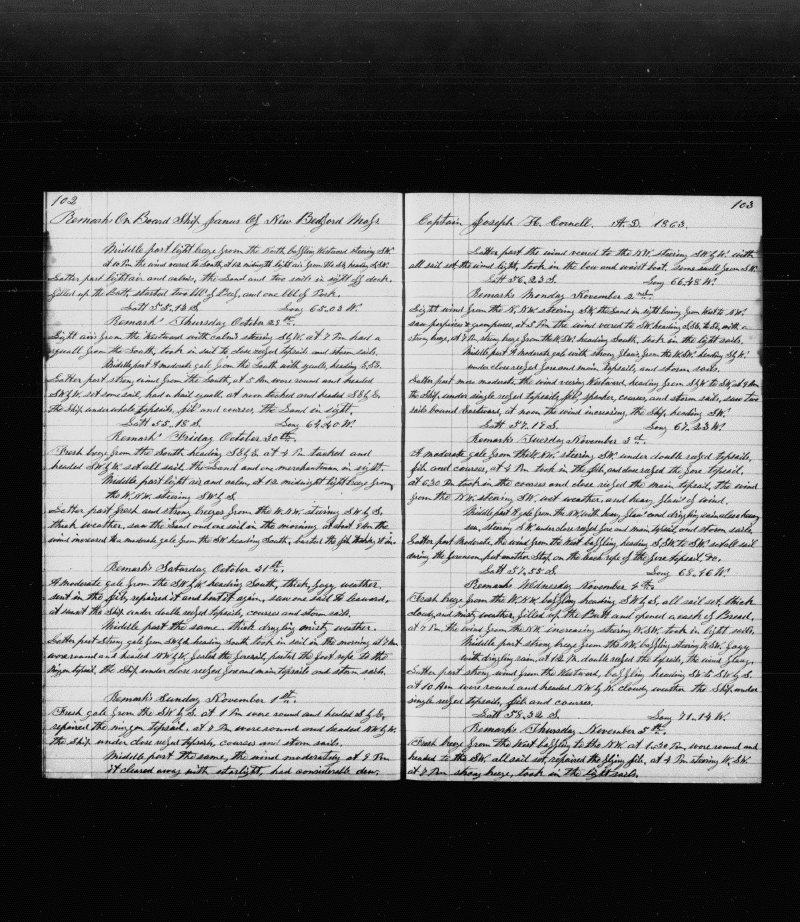 102
Remarks On Board Ship Janus Of New Bedford Mass
Middle part light breeze from the North baffling Westward steering SW.
at 10 Pm the wind veered to South, at 12 midnight light air from the SE, heading
Latter part light air and calms, the Land and two sails in sight off deck.
filled up the Butt, started two bbl of Beef, and one bbl of Pork.
Latt 55.18 S Long 65.03 W.
Remarks Thursday October 29th.
Light airs from the Westward with calms steering S by W. at 7 Pm had a
squall from the South, took in sail to close reefed topsails and storm sails.
Middle part A moderate gale from the South with squalls heading
Latter part strong wind from the South, at 5 Am wore round and headed
SW by W. set some sail, had a hail squall, at noon tacked and headed SE by E.
The Ship under whole topsails, jib and courses, the Land in sight.
Latt 55.18 S. Long 64.40 W.
Remarks Friday October 30th.
Fresh breeze from the South heading SE by E at 4 Pm tacked and
headed SW by W. set all sail the Land and one merchantman in sight.
Middle part light air and calm, at 12 midnight light breeze from
the W.N.W. steering SW by S.
Latter part fresh and strong breezes from the W.N.W. steering SW by S,
thick weather, saw the Land and one sail in the morning at about 9 Am the
wind increased to a moderate gale from the SW heading South, bursted the jib, in.
Remarks Saturday October 31st.
A moderate gale from the SW by W heading South, thick foggy weather.
sent in the jib, repaired it and bent it again, saw one sail to leeward,
at sunset the Ship under double reefed topsails, courses and storm sails.
Middle part the same, thick drizzling misty weather.
Latter part Strong gale from SW by S. heading South took in sail in the morning, at 7 Am
wore round and headed NW by W. furled the foresail, parted the foot rope to the
mizzen topsail, the Ship under close reefed fore and main topsails and storm sails.
Remarks Sunday November 1st.
Fresh gale from the SW by S. at 1 Pm wore round and headed S by E,
repaired the mizzen topsail, at 8 Pm wore round and headed NW by W.
the Ship under close reefed topsails, courses and storm sails.
Middle part the same, the wind moderately at 9 Pm
it cleared away with starlight, had considerable dew.
103
Captain Joseph H. Cornell. A.D. 1863.
Latter part the wind veered to the NW. steering SW by W. with
all sail set the wind light, took in the bow and waist boat. Some swell from SW.
Latt 56.23 S. Long 66.48 W.
Remarks Monday November 2nd.
Light wind from the N.NW. steering SW. the Land in sight bearing from West to NW.
saw porpoises, at 5 Pm the wind veered to SW heading with a
strong breeze, at 7 Pm strong breeze from the heading South, took in the light sails.
Middle part A moderate gale with strong flaws from the heading S by W.
under close reefed fore and main topsails, and storm sails.
Latter part more moderate, the wind veering Westward, heading from S by W to SW, at 9 Am
the Ship under single reefed topsails jib, spanker, courses, and storm sails, saw two
sails bound Eastward, at noon the wind increasing, the Ship, heading SW.
Latt 57.19 S. Long 67.23 W.
Remarks Tuesday November 3d.
A moderate gale from the N.W. steering SW. under double reefed topsails,
jib and courses, at 4 Pm took in the jib, and close reefed the fore topsail,
at 6.30 Pm took in the courses and close reefed the main topsail, the wind
from the NW. steering SW, wet weather, and heavy flaws of wind.
Middle part A gale from the NW. with heavy flaws and drizzling rain, also heavy
sea, steering SW under close reefed fore and main topsail, and storm sails.
Latter part Moderate, the wind from the West baffling heading to SW. set all sail
during the forenoon, put another Stop on the back rope of the fore topsail, &c.
Latt 57.55 S Long 68.46 W.
Remarks Wednesday November 4th.
Fresh breeze from the W.NW. baffling heading SW by S, all sail set, thick
cloudy, and misty weather, filled up the Butt and opened a cask of Bread,
at 7 Pm, the wind from the NW. increasing steering W.SW. took in light sails.
Middle part strong breeze from the NW. baffling steering W.SW. foggy
with drizzling rain, at 12 Pm. double reefed the topsails, the wind flawy.
Latter part strong wind from the Westward, baffling heading SW to SW by S,
at 10 Am wore round and headed NW by N. cloudy weather the Ship under
single reefed topsails, jib and courses.
Latt 58.32 S. Long 71.14 W.
Remarks Thursday November 5th.
Fresh breeze from the West baffling to the NW. at 1.30 Pm wore round and
headed to the SW. all sail set, repaired the flying jib, at 4 Pm steering W.SW.
at 7 Pm strong breeze, took in the light sails.